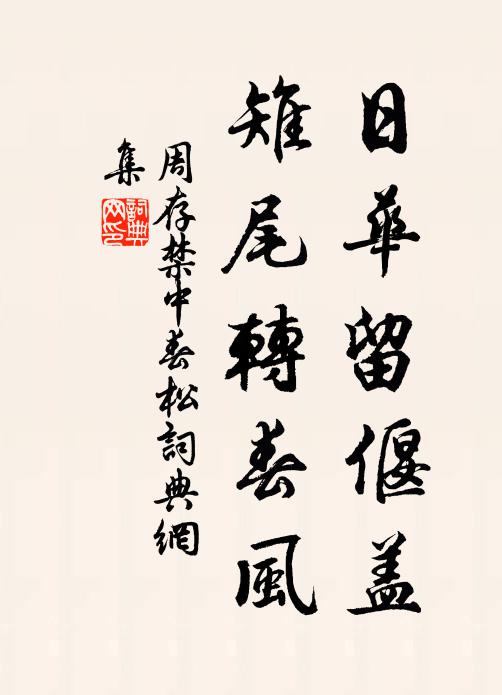 日華留偃盖
雉尾轉春風
周存禁中春松詞典網
集
詞典
网印